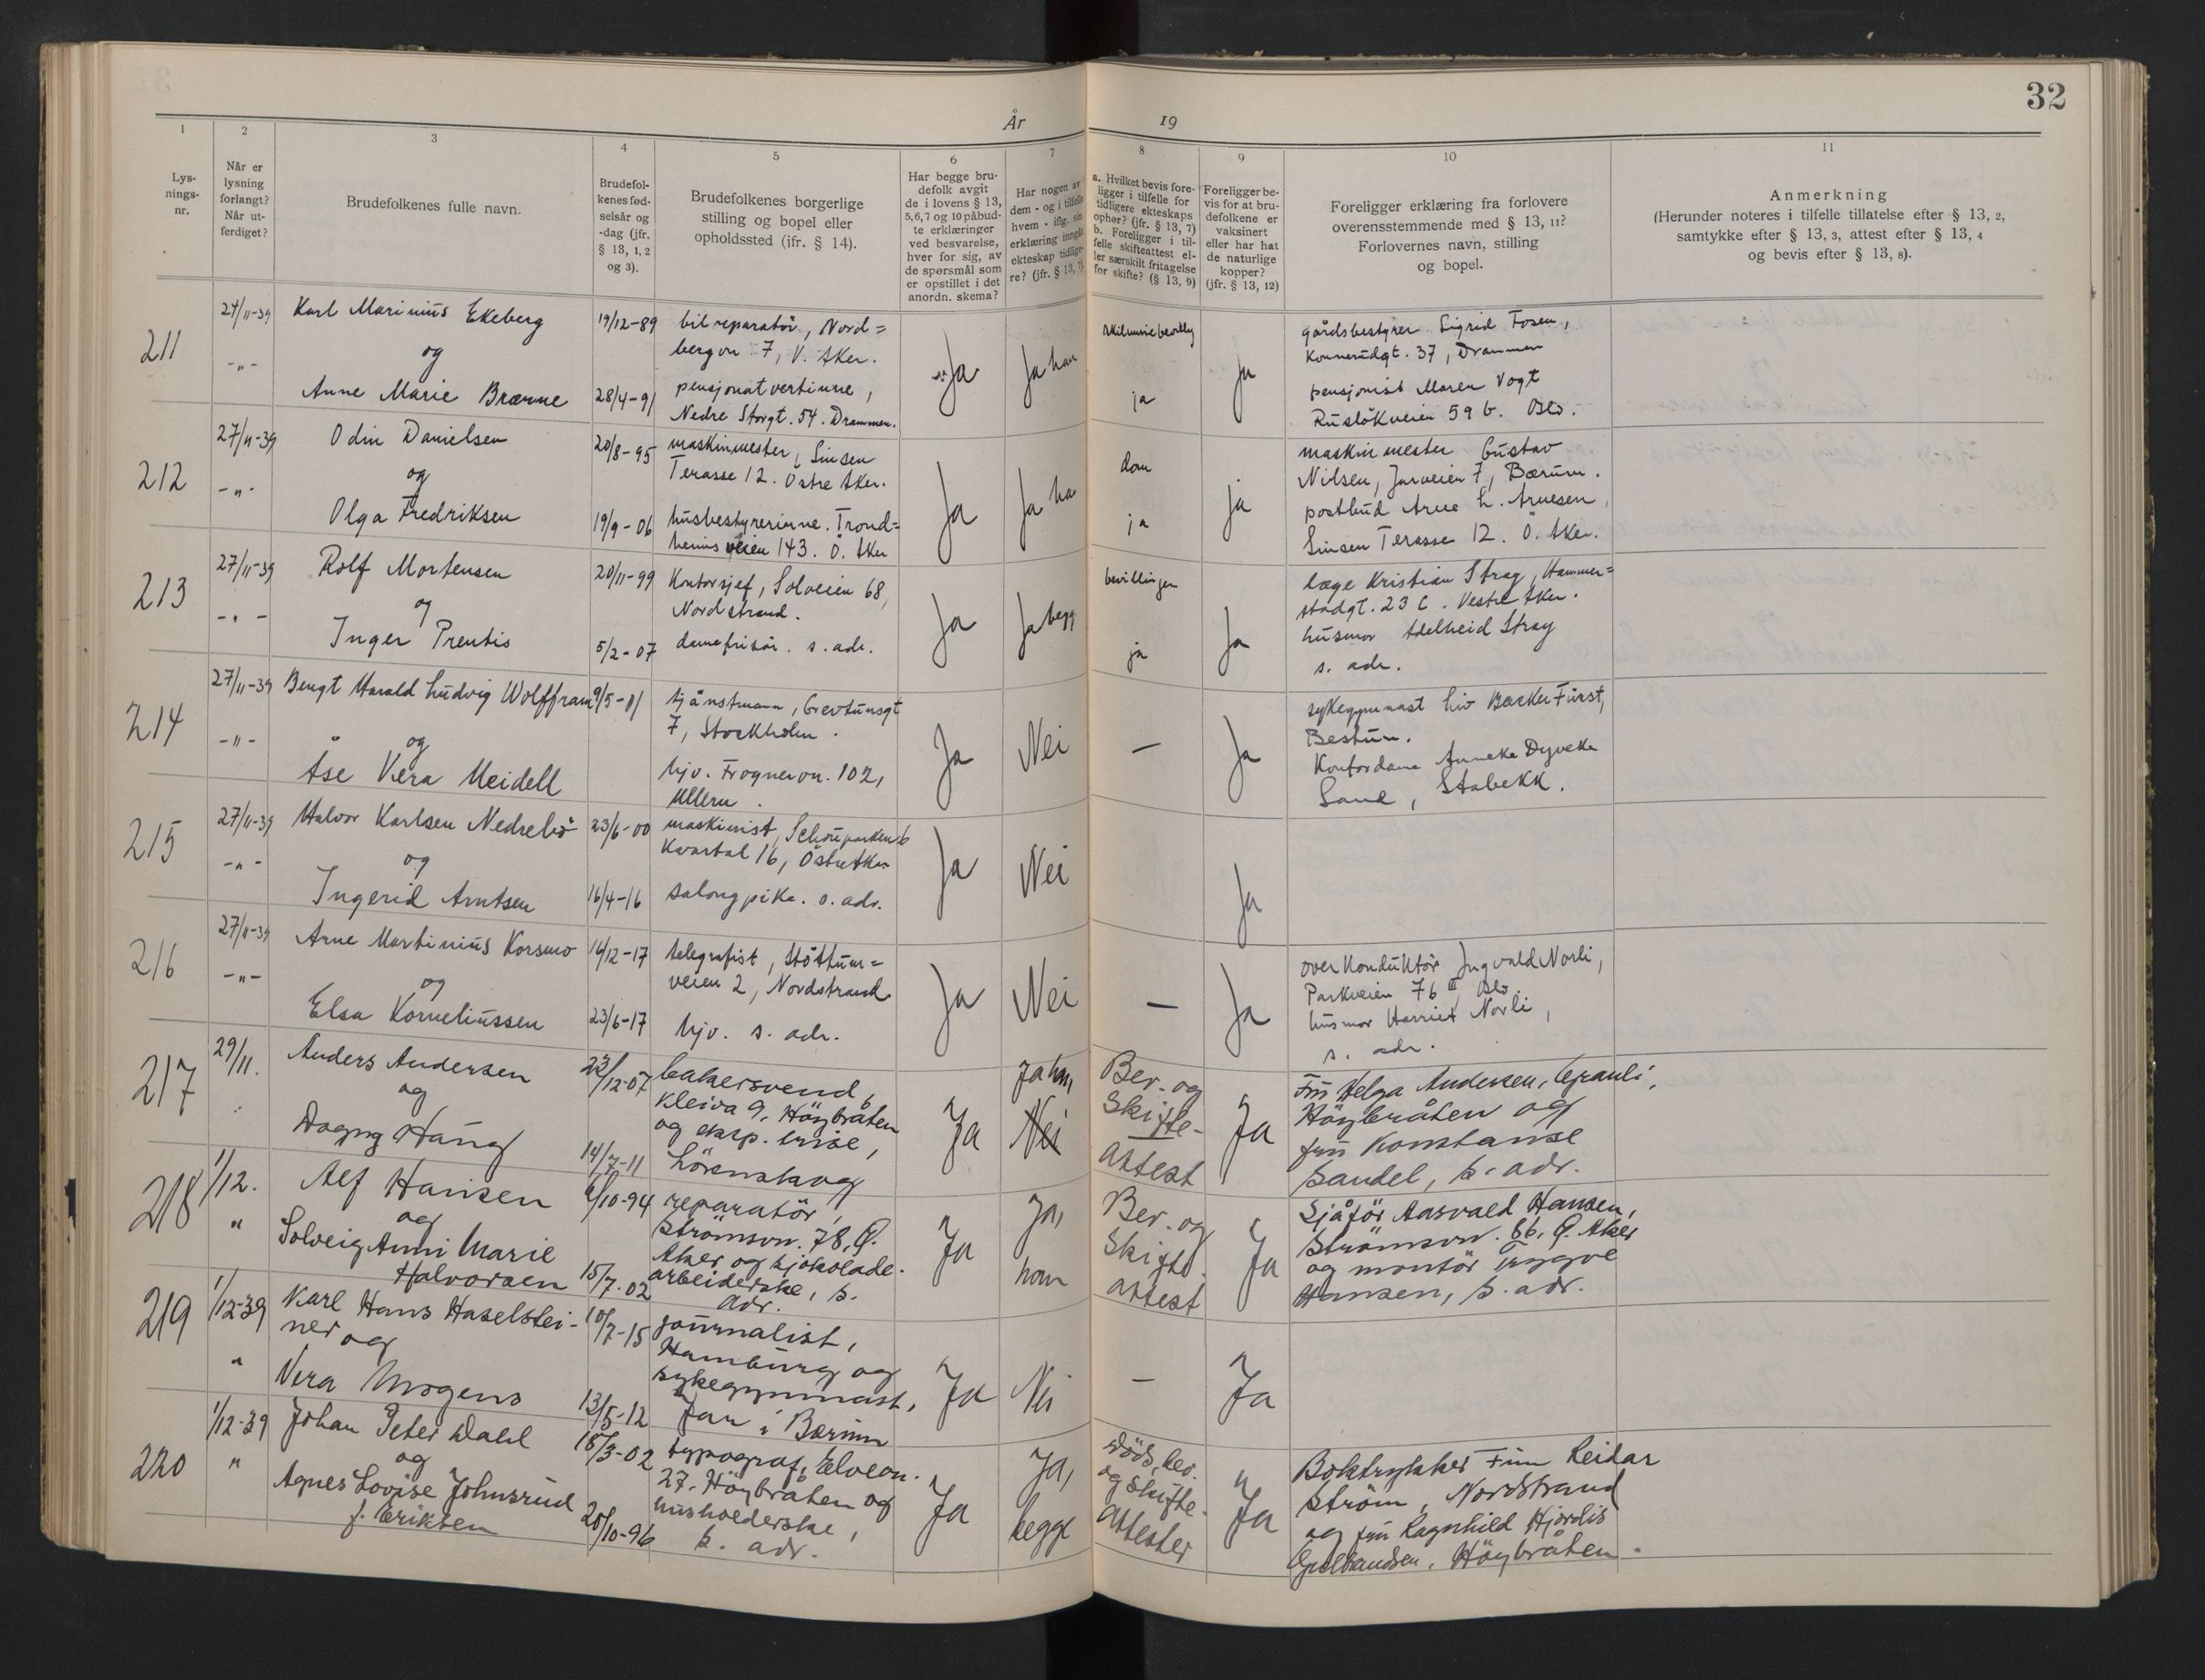 32
År 19
1 2 3 4 5 6 7 8 9 10 11
Lys-
nings-
nr.
Når er
lysning
forlangt?
Når ut-
ferdiget?
Brudefolkenes fulle navn.
Brudefol-
kenes fød-
selsår og
-dag (jfr.
§ 13, 1, 2
og 3).
Brudefolkenes borgerlige
stilling og bopel eller
opholdssted (ifr. § 14).
Har begge bru-
defolk avgit
de i lovens § 13,
5, 6, 7 og 10 påbud-
te erklæringer
ved besvarelse,
hver for sig, av
de spørsmål som
er opstillet i det
anordn. skema?
Har nogen av
dem - og i tilfelle
hvem - iflg. sin
erklæring inngått
ekteskap tidlige-
re? (jfr. § 13, 7)
a. Hvilket bevis fore-
ligger i tilfelle for
tidligere ekteskaps
ophør? (jfr. § 13, 7)
b. Foreligger i til-
felle skifteattest el-
ler særskilt fritagelse
for skifte? (§ 13, 9)
Foreligger be-
vis for at bru-
defolkene er
vaksinert
eller har hat
de naturlige
kopper?
(jfr. § 13, 12)
Foreligger erklæring fra forlovere
overensstemmende med § 13, 11?
Forlovernes navn, stilling
og bopel.
Anmerkning
(Herunder noteres i tilfelle tillatelse efter § 13, 2,
samtykke efter § 13, 3, attest efter § 13, 4
og bevis efter § 13, 8).
211
27/11-39
-"-
Karl Marinius Ekeberg
og
Anne Marie Brænne
19/12-89
28/4-91
bilreparatör, Nord=
bergvn 7, V. Aker.
pensjonatvertinne,
Nedre Storgt. 54. Drammen.
Ja
Ja han
ja
Ja
gårdsbestyrer Sigrid Fosen,
Konnerudgt. 37, Drammen
pensjonist Maren Vogt
Rusløkveien 59 b. Oslo.
212
27/11-39
-"-
Odin Danielsen
og
Olga Fredriksen
20/8-95
19/9-06
maskinmester, Sinsen
Terasse 12. Östre Aker.
husbestyrerinne. Trond=
heimsveien 143. Ö. Aker
Ja
Ja han
dom
ja
ja
maskinmester Gustav
Nilsen, Jarveien 7, Bærum.
postbud Arne L. Arnesen,
Sinsen Terasse 12. Ö. Aker.
213
27/11-39
-"-
Rolf Mortensen
og
Inger Prentis
20/11-99
5/2-07
Kontorsjef, Solveien 68,
Nordstrand.
damefrisör. s. adr.
Ja
Ja begg
bevillinger
ja
Ja
læge Kristian Stray, Hammer=
stadgt. 23 C. Vestre Aker.
husmor Adelheid Stray
s. adr.
214
27/11-39
-"-
Bengt Harald Ludvig Wolffram
og
Åse Vera Meidell
9/5-11
tjänstmann, Grevtunsgt
7, Stockholm.
hjv. Frognervn. 102,
Ullern.
Ja
Nei
—
Ja
sykegymnast Liv Backer Fürst,
Bestum.
Kontordame Anneke Dyveke
Sand, Stabekk.
215
27/11-39
-"-
Halvor Karlsen Nedrebö
og
Ingerid Arntsen
23/6-00
16/4-16
maskinist, Schouparken 6
Kvartal 16, Östre Aker
salongpike. s. adr.
Ja
Nei
Ja
216
27/11-39
-"-
Arne Martinius Korsmo
og
Elsa Korneliussen
16/12-17
23/6-17
telegrafist, Stöttum=
veien 2, Nordstrand
hjv. s. adr.
Ja
Nei
—
Ja
overkonduktör Ingvald Norli,
Parkveien 76 III, Oslo.
husmor Harriet Norli,
s. adr.
217
29/11.
Anders Andersen
og
Dagny Haug
23/12-07
14/7-11
bakersvend,
Kleiva 9, Höybråten
og eksp.
Lörenskog
Ja
Ja han,
Nei
Ber. og
Skifte-
attest
Ja
Fru Helga Andersen, Granli,
Höybråten og
fru Konstanse
Sandel, s. adr.
218
1/12.
"
Alf Hansen
og
Solveig Anni Marie
Halvorsen
6/10-94
15/7-02
reparatör,
Strömsvn. 78, Ö.
Aker og sjokolade-
arbeiderske, s.
adr.
Ja
Ja,
han
Ber. og
Skifte
attest
Ja
Sjåför Aasvald Hansen,
Strömsvn. 66, Ö. Aker
og montör Trygve
Hansen, s. adr.
219
1/12-39
"
Karl Hans Haselstei-
ner og
Vera Mogens
10/7-15
13/5-12
journalist,
Hamburg og
sykegymnast,
Jar i Bærum
Ja
Nei
—
Ja
220
1/12-39
"
Johan Peter Dahl
og
Agnes Lovise Johnsrud
f. Eriksen
15/3-02
20/10-96
typograf, Elvevn.
27, Höybråten og
husholderske,
s. adr.
Ja
Ja,
begge
Döds, ber.
og skifte-
attester
Ja
Boktrykker Finn Reidar
Ström, Nordstrand
og fru Ragnhild Hjördis
Gulbrandsen, Höybråten.